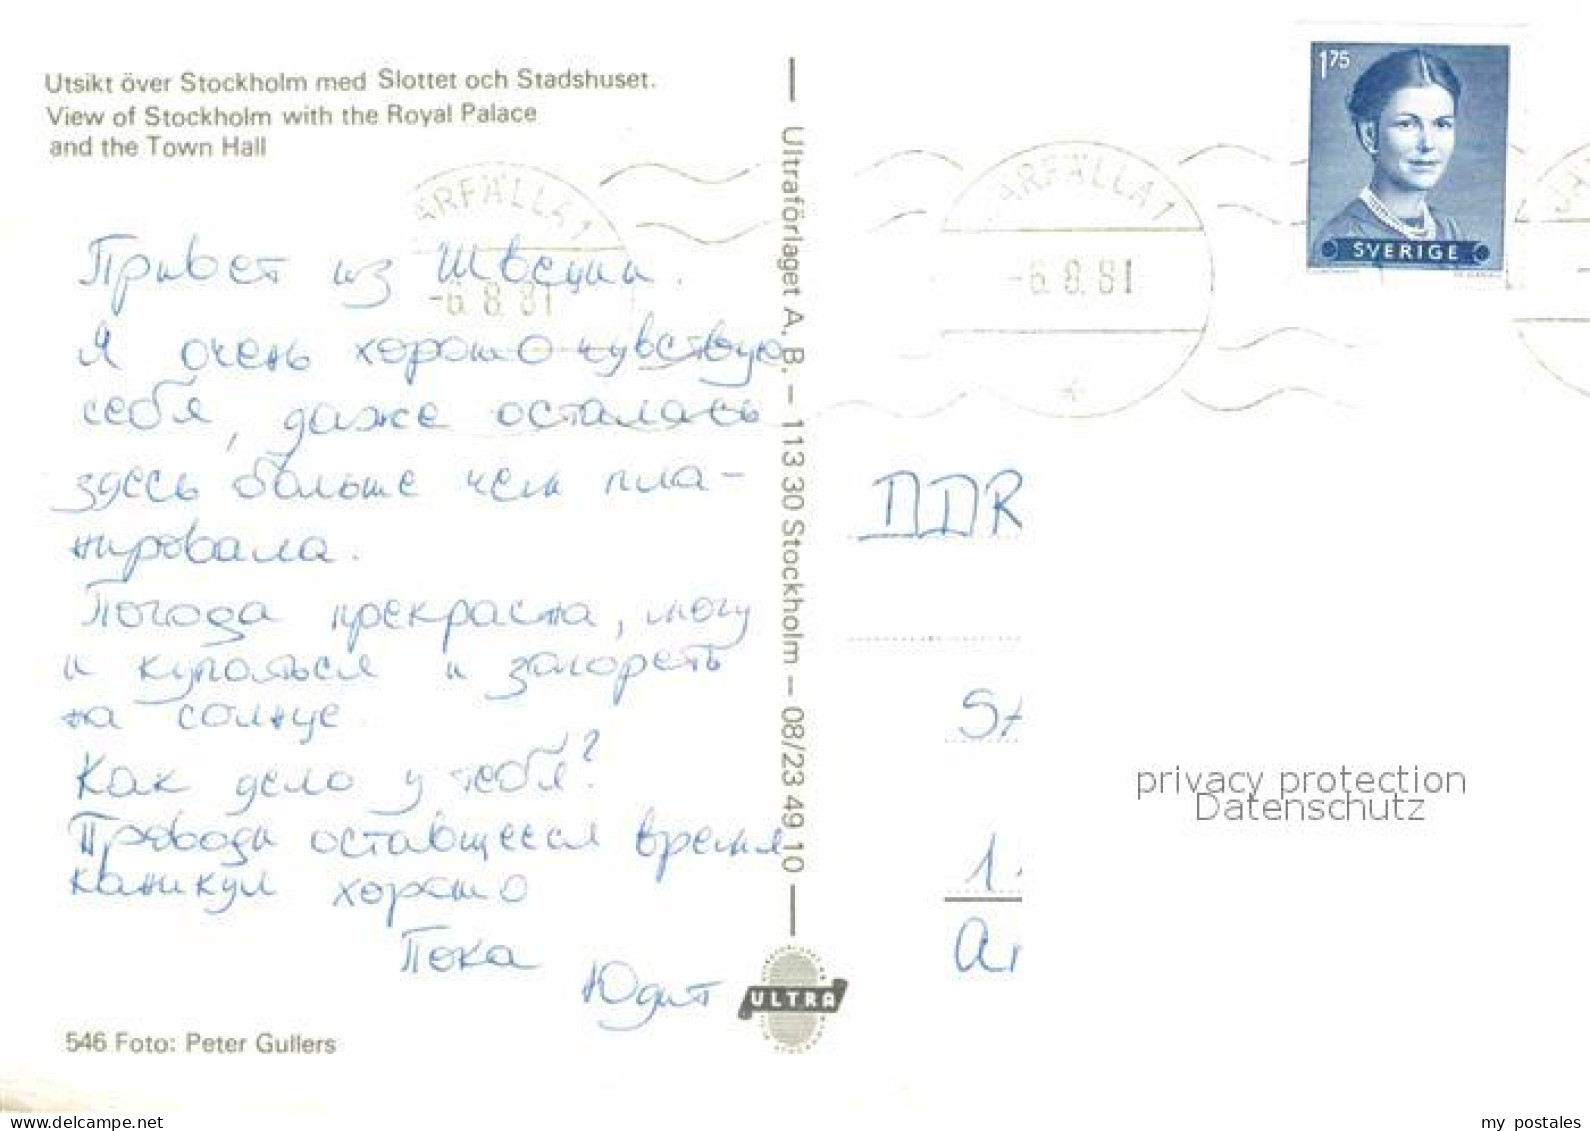 Utsikt över Stockholm med Slottet och Stadshuset.
View of Stockholm with the Royal Palace
and the Town Hall
ARFÄLLA 1
-6.8.81
Привет из Швеции.
Я очень хорошо чувствую
себя, даже осталась
здесь больше чем пла-
нировала.
Погода прекрасна, могу
и купаться и загореть
на солнце.
Как дело у тебя?
Проводи оставщееся время
каникул хорошо
Пока
Юдит
546 Foto: Peter Gullers
Ultraförlaget A. B. – 113 30 Stockholm – 08/23 49 10
ULTRA
ARFÄLLA 1
-6.8.81
1.75
SVERIGE
JÄ
DDR
SA
1
privacy protection
Datenschutz
www.delcampe.net
my_postales